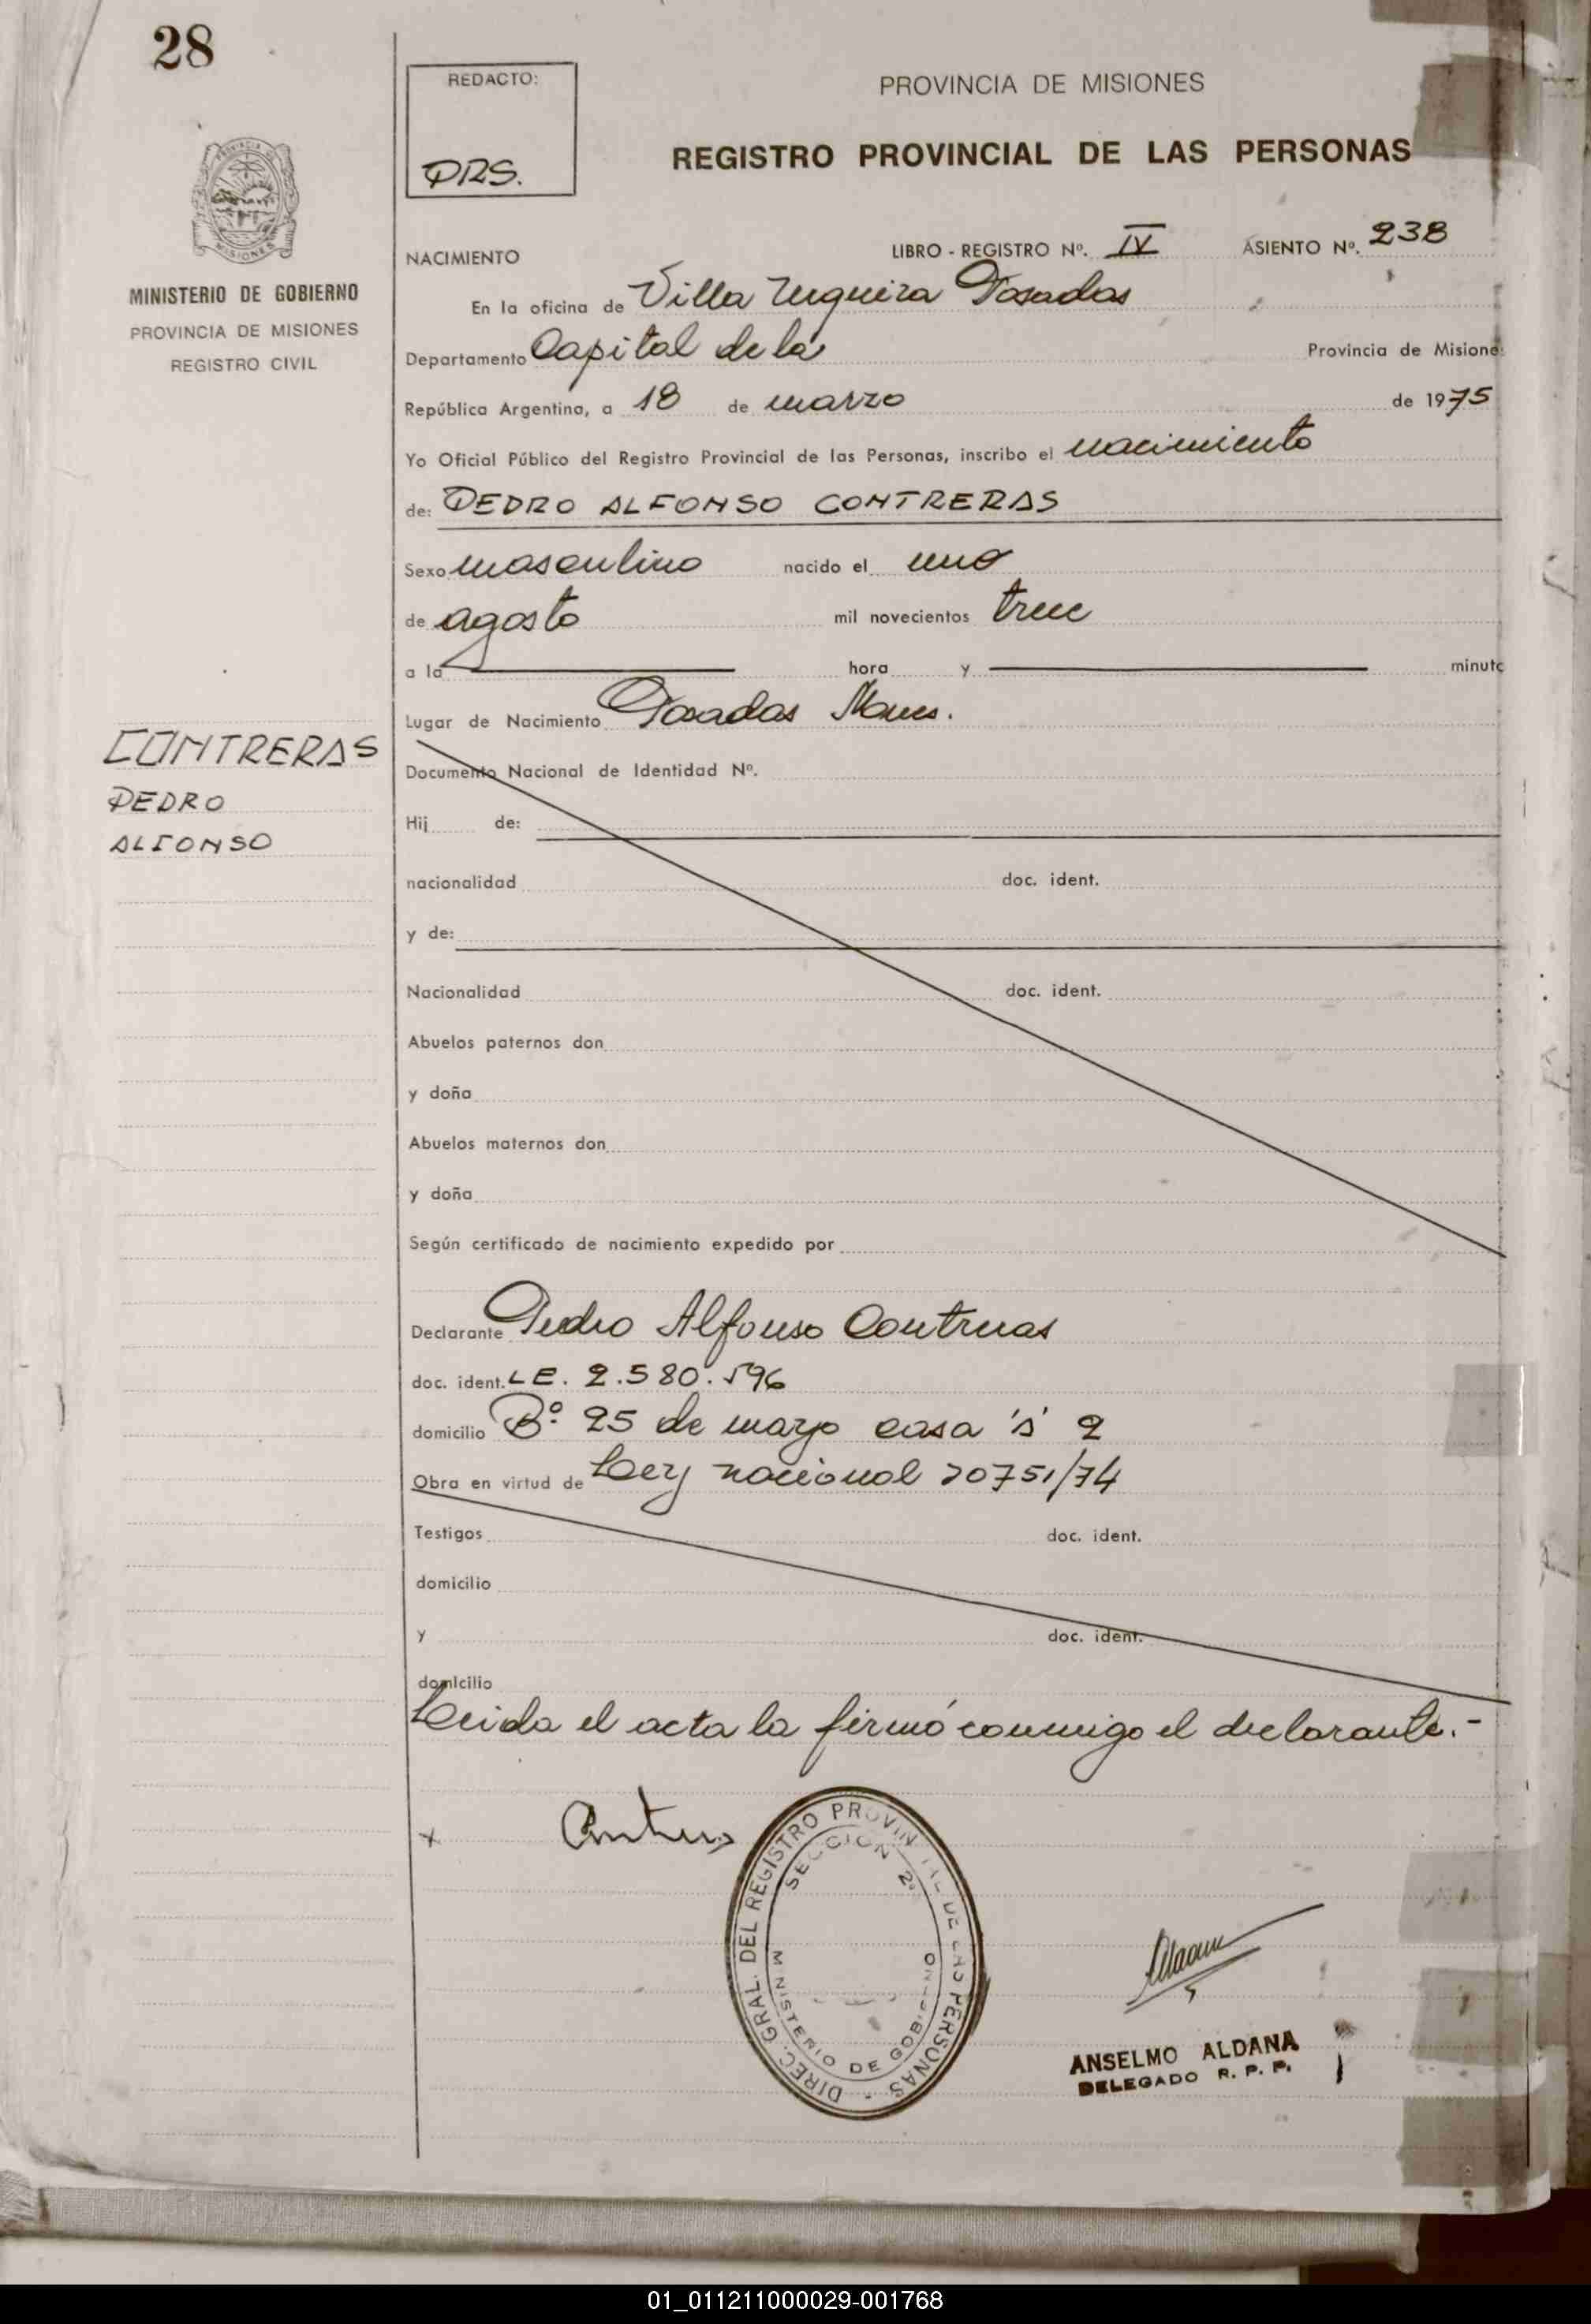 28
REDACTO:
PRS.
PROVINCIA DE MISIONES
REGISTRO PROVINCIAL DE LAS PERSONAS
MINISTERIO DE GOBIERNO
PROVINCIA DE MISIONES
REGISTRO CIVIL
NACIMIENTO LIBRO - REGISTRO Nº. IV ASIENTO Nº. 238
En la oficina de Villa Urquiza Posadas
Departamento Capital de la Provincia de Misiones
República Argentina, a 18 de marzo de 1975
Yo Oficial Público del Registro Provincial de las Personas, inscribo el nacimiento
de: PEDRO ALFONSO CONTRERAS
Sexo masculino nacido el uno
de agosto mil novecientos trece
a la hora y minuto
Lugar de Nacimiento Posadas Mnes.
CONTRERAS
PEDRO
ALFONSO
Documento Nacional de Identidad Nº.
Hij de:
nacionalidad doc. ident.
y de:
Nacionalidad doc. ident.
Abuelos paternos don
y doña
Abuelos maternos don
y doña
Según certificado de nacimiento expedido por
Declarante Pedro Alfonso Contreras
doc. ident. LE. 2.580.596
domicilio Bº. 25 de mayo casa 's' 2
Obra en virtud de Ley nacional 20751/74
Testigos doc. ident.
domicilio
y doc. ident.
domicilio
Leida el acta la firmó conmigo el declarante.-
x
DIREC. GRAL. DEL REGISTRO PROVINCIAL DE LAS PERSONAS -
SECCION 2ª
MINISTERIO DE GOBIERNO
ANSELMO ALDANA
DELEGADO R. P. P.
01_011211000029-001768